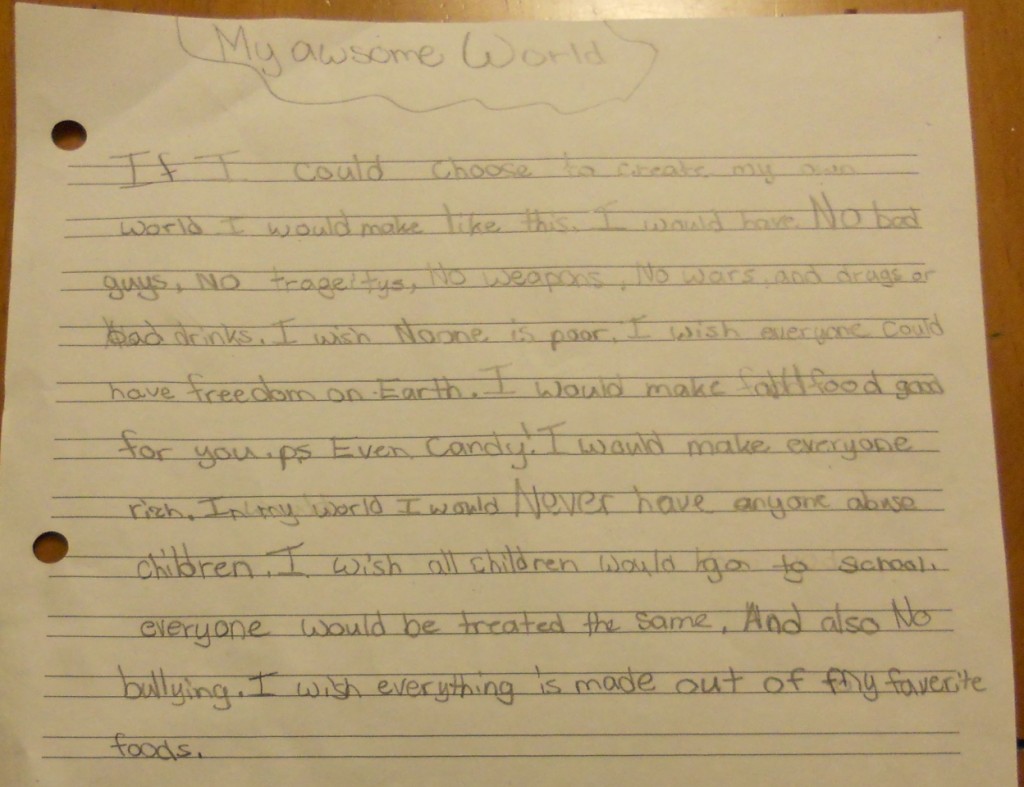 My awsome World
If I could choose to create my own
world I would make like this. I would have No bad
guys, No trageitys, No weapons, No wars, and drugs or
bad drinks. I wish Noone is poor. I wish everyone could
have freedom on Earth. I would make food good
for you. ps Even Candy! I would make everyone
rich. In my world I would Never have anyone abuse
children. I wish all children would go to school.
everyone would be treated the same. And also No
bullying. I wish everything is made out of my faverite
foods.